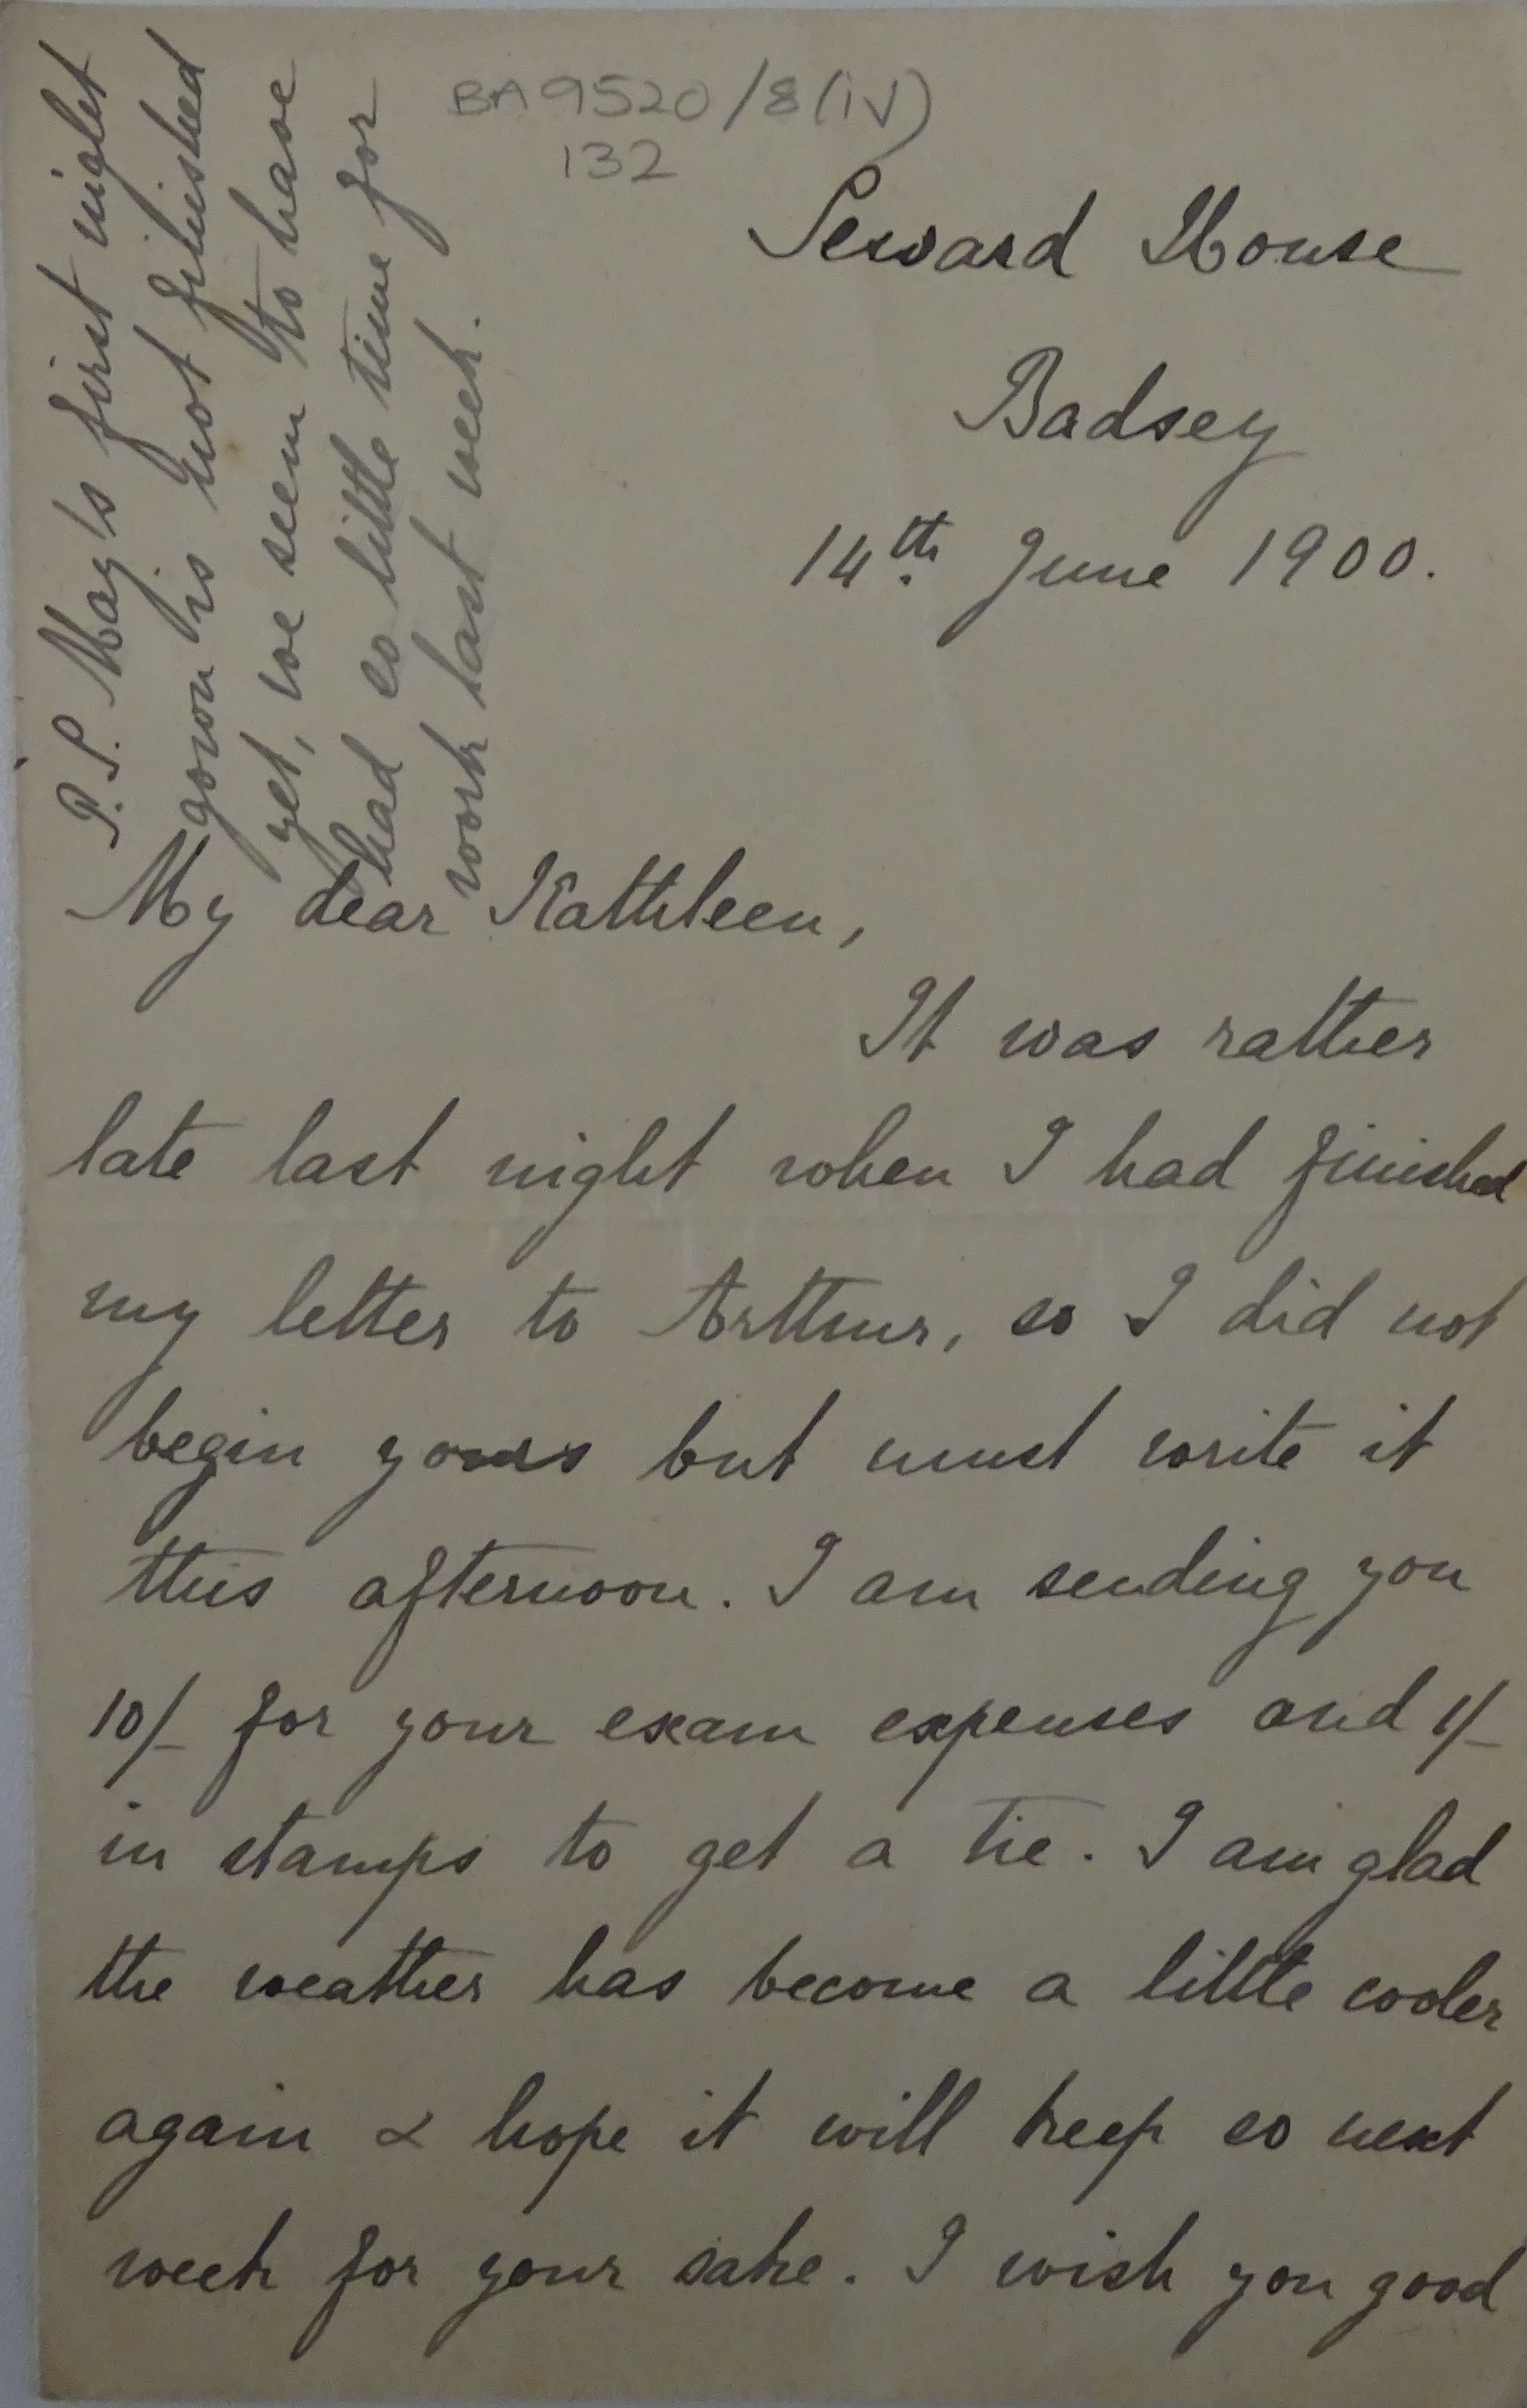 BA 9520/8(iv)
132
Seward House
Badsey
14th. June 1900.
My dear Kathleen,
It was rather
late last night when I had finished
my letter to Arthur, so I did not
begin yours but must write it
this afternoon. I am sending you
10/- for your exam expenses and 1/-
in stamps to get a tie. I am glad
the weather has become a little cooler
again & hope it will keep so next
week for your sake. I wish you good
P.S. May's first night
gown is not finished
yet, we seem to have
had so little time for
work last week.